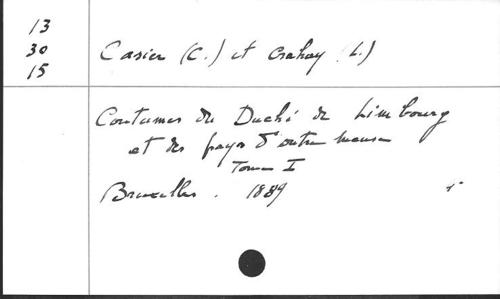 13
30
15
Casier (C.) et Crahay (L.)
Coutumes du Duché de Limbourg
et des pays d'outre meuse
Tome I
Bruxelles. 1889